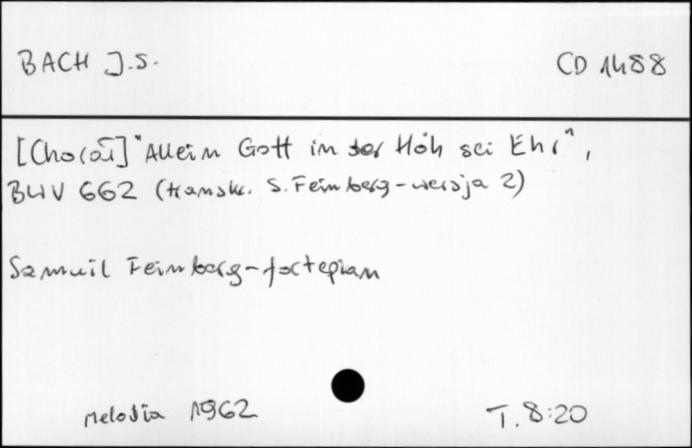 BACH J.S.
CD 1488
[Chorał] "Allein Gott in der Höh sei Ehr",
BWV 662 (transkr. S. Feinberg - wersja 2)
Samuil Feinberg - fortepian
Melodia 1962
T. 8:20